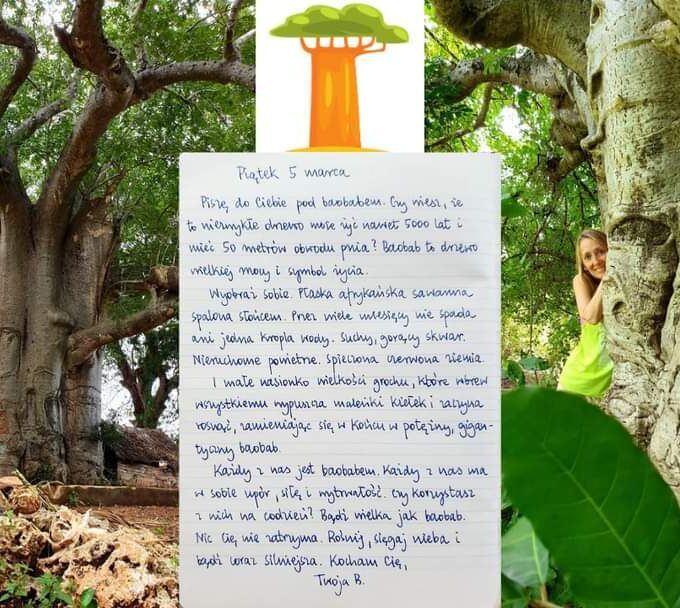 Piątek 5 marca
Piszę do Ciebie pod baobabem. Czy wiesz, że
to niezwykłe drzewo może żyć nawet 5000 lat i
mieć 50 metrów obwodu pnia? Baobab to drzewo
wielkiej mocy i symbol życia.
Wyobraź sobie. Płaska afrykańska sawanna
spalona słońcem. Przez wiele miesięcy nie spada
ani jedna kropla wody. Suchy, gorący skwar.
Nieruchome powietrze. Spieczona czerwona ziemia.
I małe nasionko wielkości grochu, które wbrew
wszystkiemu wypuszcza maleńki kiełek i zaczyna
rosnąć, zamieniając się w końcu w potężny, gigan-
tyczny baobab.
Każdy z nas jest baobabem. Każdy z nas ma
w sobie upór, siłę i wytrwałość. Czy korzystasz
z nich na codzień? Bądź wielka jak baobab.
Nic Cię nie zatrzyma. Rośnij, sięgaj nieba i
bądź coraz silniejsza. Kocham Cię,
Twoja B.